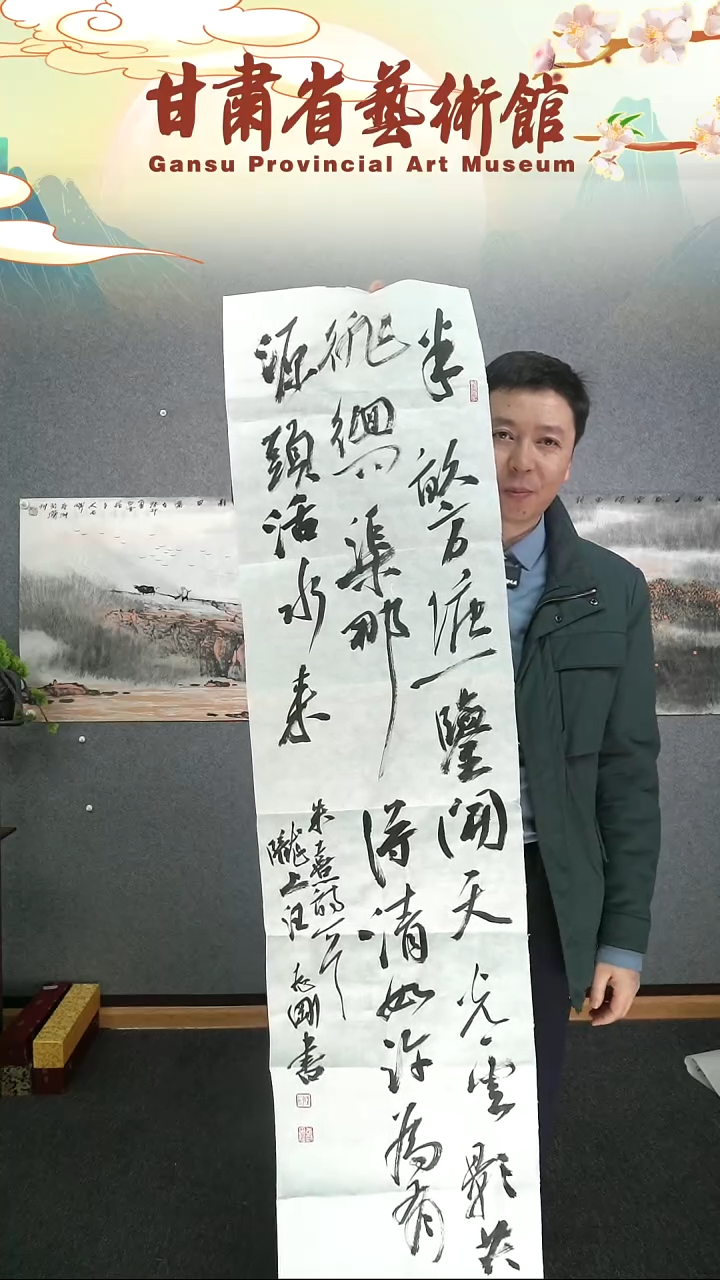 甘肅省藝術館
Gansu Provincial Art Museum
半畝方塘一鑒開天光雲影共
徘徊問渠那得清如許為有
源頭活水來
朱熹詩一首
隴上汪志剛書